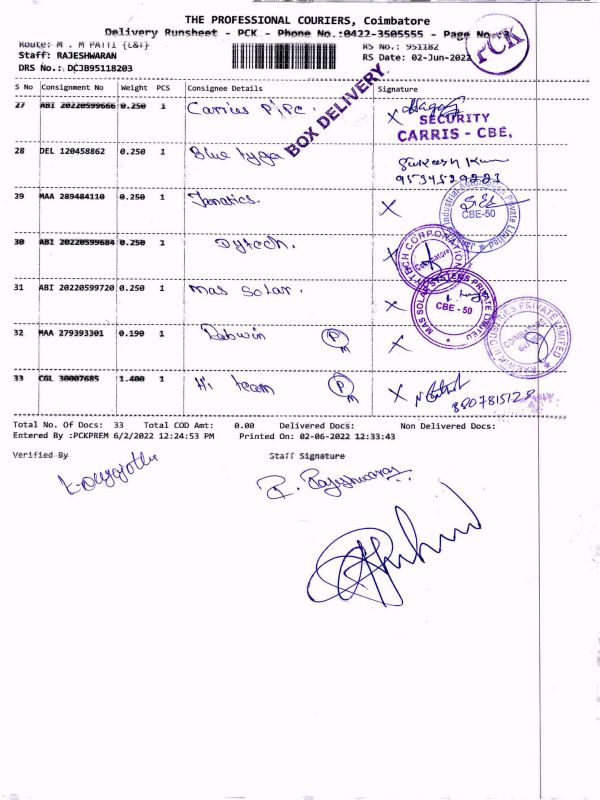 THE PROFESSIONAL COURIERS, Coimbatore
Delivery Runsheet - PCK - Phone No.:0422-3505555 - Page No.
Route: M . M PATTI {L&T}
RS No.: 951182
Staff: RAJESHWARAN
RS Date: 02-Jun-2022
DRS No.: DCJB95118203
PCK
S No Consignment No Weight PCS Consignee Details Signature
27 ABI 20220599666 0.250 1 Carries pipe.
BOX DELIVERY
SECURITY
CARRIS - CBE.
28 DEL 120458862 0.250 1 Blue tyga
Suresh Kum
29 MAA 289484110 0.250 1 Janatics. X
CBE-50
30 ABI 20220599684 0.250 1 Dytech. X
Coimbatore
31 ABI 20220599720 0.250 1 mas solar. X
MAS SOLAR SYSTEMS PRIVATE LIMITED
CBE - 50
32 MAA 279393301 0.190 1 Rebwin P M X
PRIVATE LIMITED
33 CGL 30007685 1.400 1 Hi team P M X
8807815128
Total No. Of Docs: 33 Total COD Amt: 0.00 Delivered Docs: Non Delivered Docs:
Entered By :PCKPREM 6/2/2022 12:24:53 PM Printed On: 02-06-2022 12:33:43
Verified By Staff Signature
R. Rajeshwaran